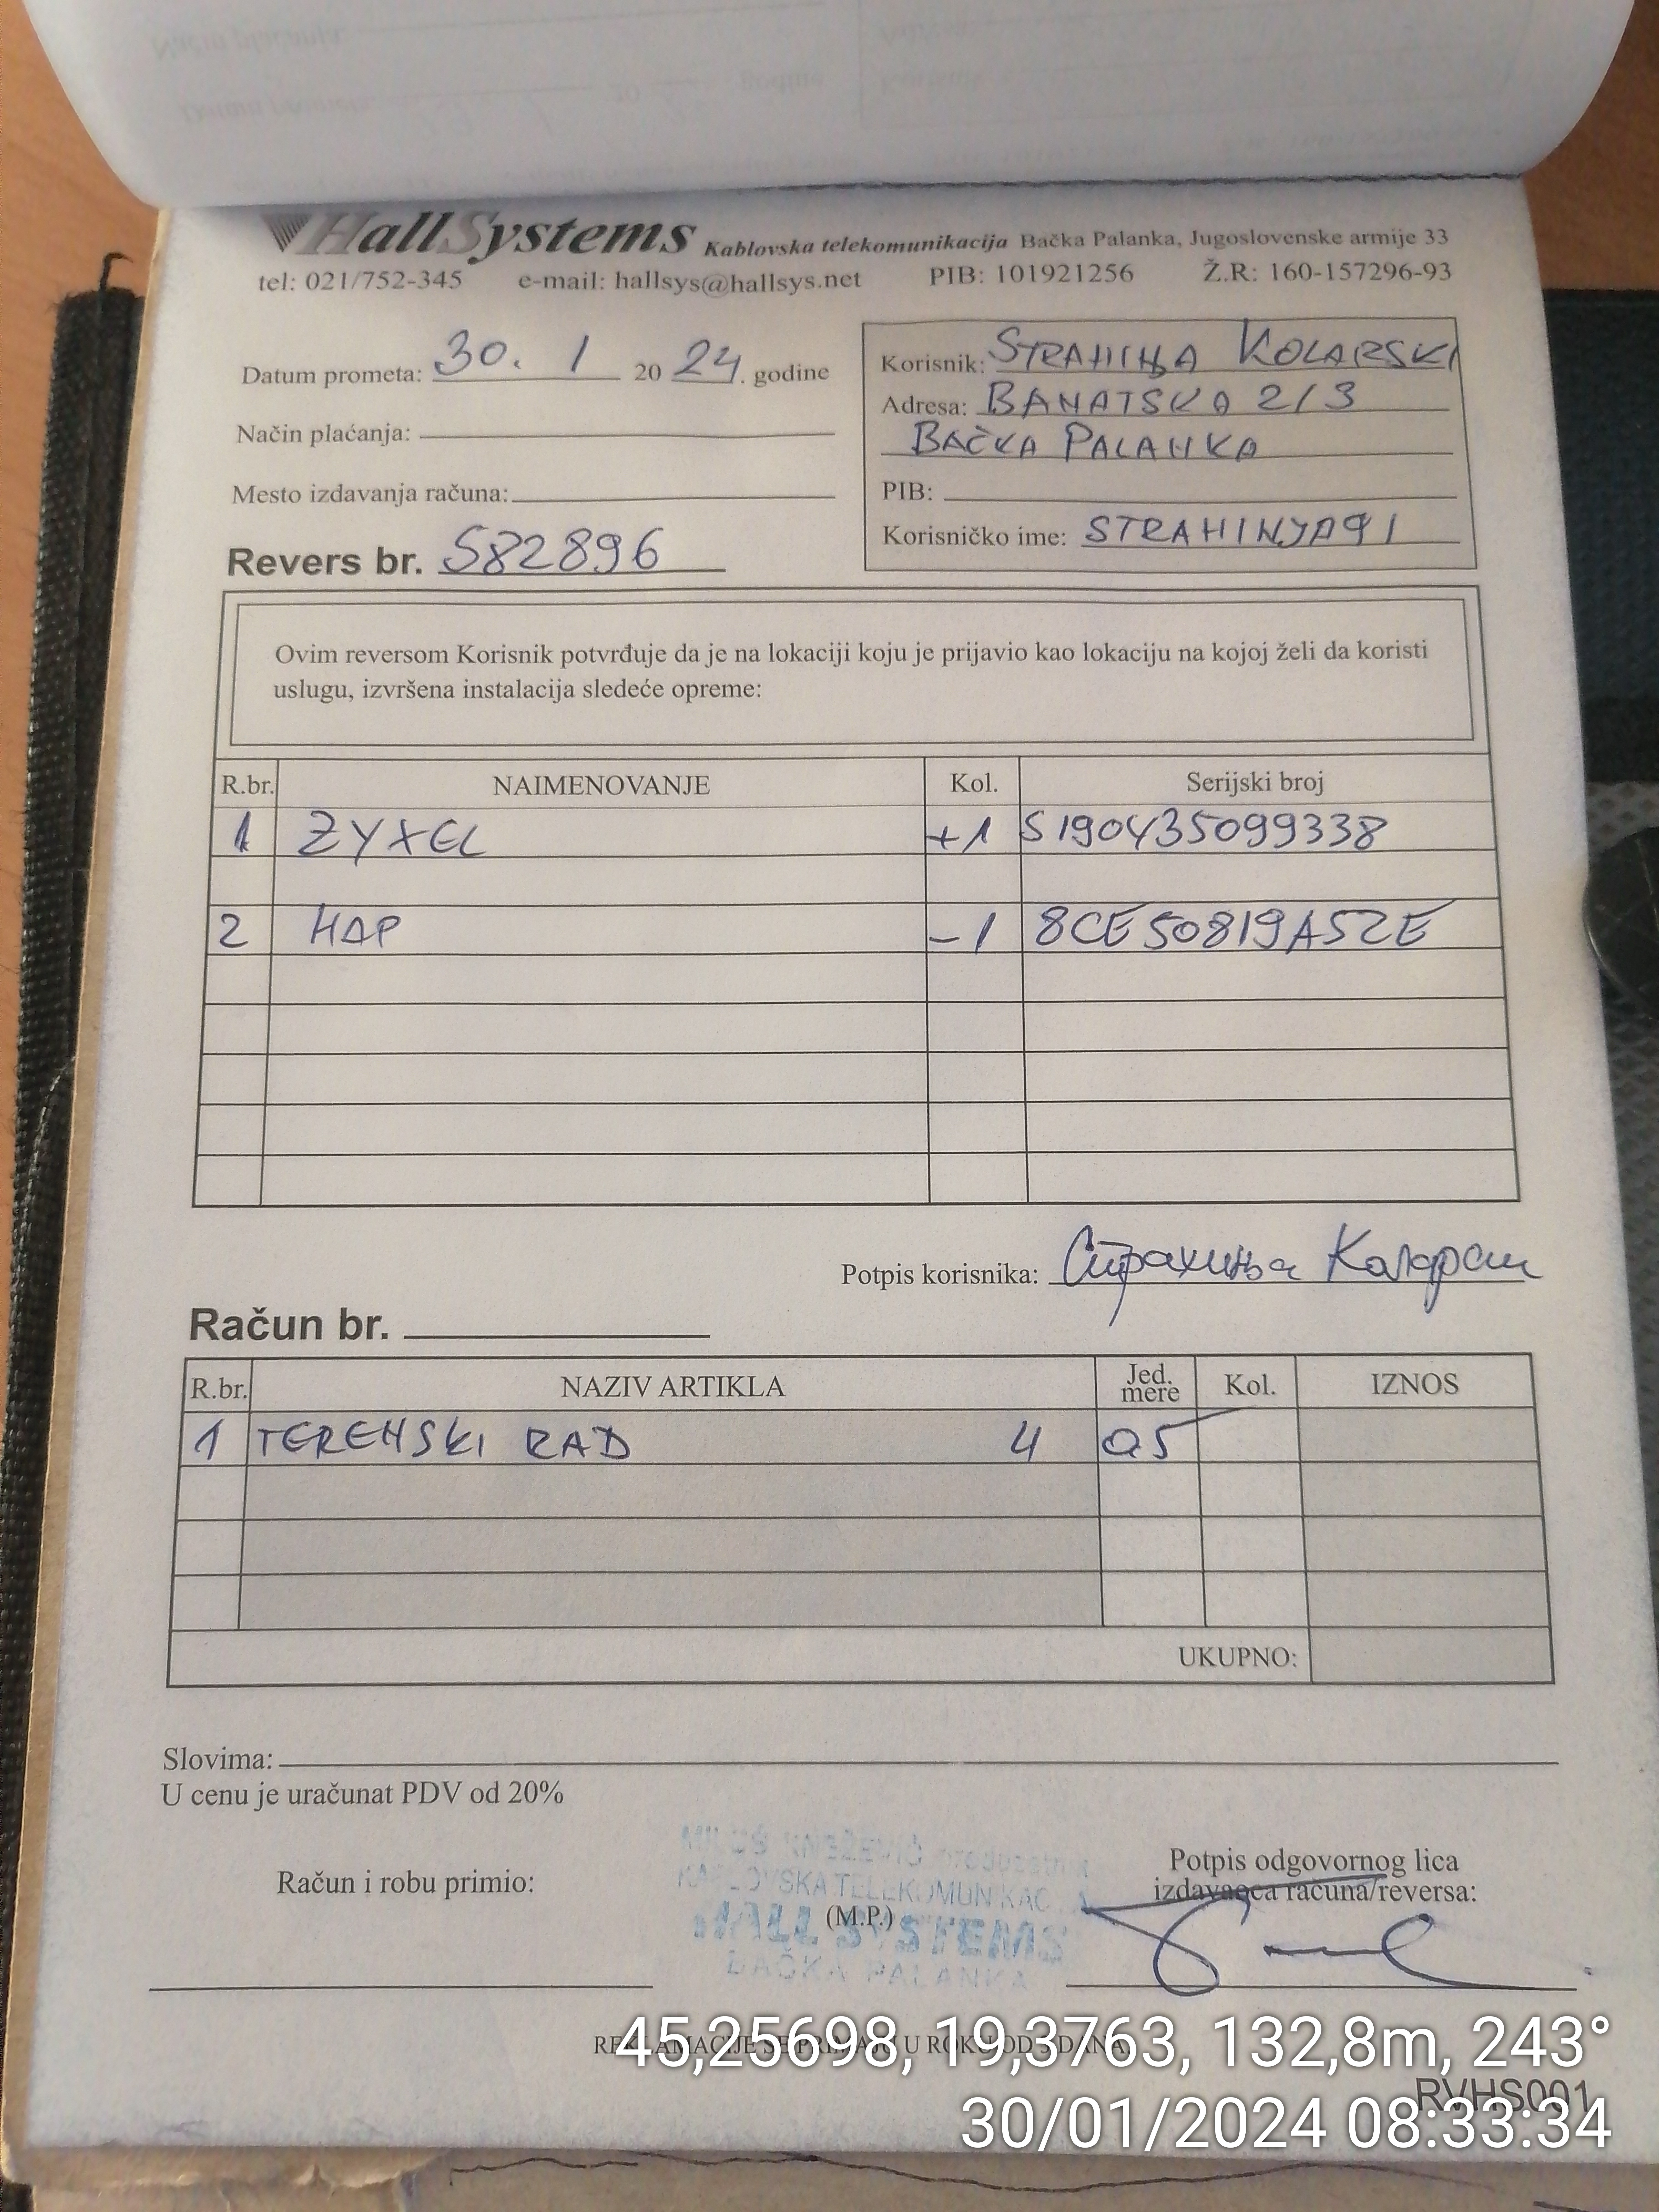 HallSystems Kablovska telekomunikacija Bačka Palanka, Jugoslovenske armije 33
tel: 021/752-345 e-mail: hallsys@hallsys.net PIB: 101921256 Ž.R: 160-157296-93
Datum prometa: 30. 1 20 24. godine
Način plaćanja:
Mesto izdavanja računa:
Revers br. 582896
Korisnik: STRAHINJA KOLARSKI
Adresa: BANATSKA 2/3
BAČKA PALANKA
PIB:
Korisničko ime: STRAHINJA91
Ovim reversom Korisnik potvrđuje da je na lokaciji koju je prijavio kao lokaciju na kojoj želi da koristi
uslugu, izvršena instalacija sledeće opreme:
R.br. NAIMENOVANJE Kol. Serijski broj
1 ZYXEL +1 S190Y35099338
2 HAP -1 8CE50819A52E
Potpis korisnika: Страхиња Коларски
Račun br.
R.br. NAZIV ARTIKLA Jed. mere Kol. IZNOS
1 TERENSKI RAD 4 05
UKUPNO:
Slovima:
U cenu je uračunat PDV od 20%
Računi robu primio:
MILOŠ KNEŽEVIĆ preduzetnik
KABLOVSKA TELEKOMUNIKACIJA
(M.P.)
HALL SYSTEMS
BAČKA PALANKA
Potpis odgovornog lica
izdavaoca računa/reversa:
REKLAMACIJE SE PRIMAJU U ROKU OD 3 DANA
45,25698, 19,3763, 132,8m, 243°
RVHS001
30/01/2024 08:33:34